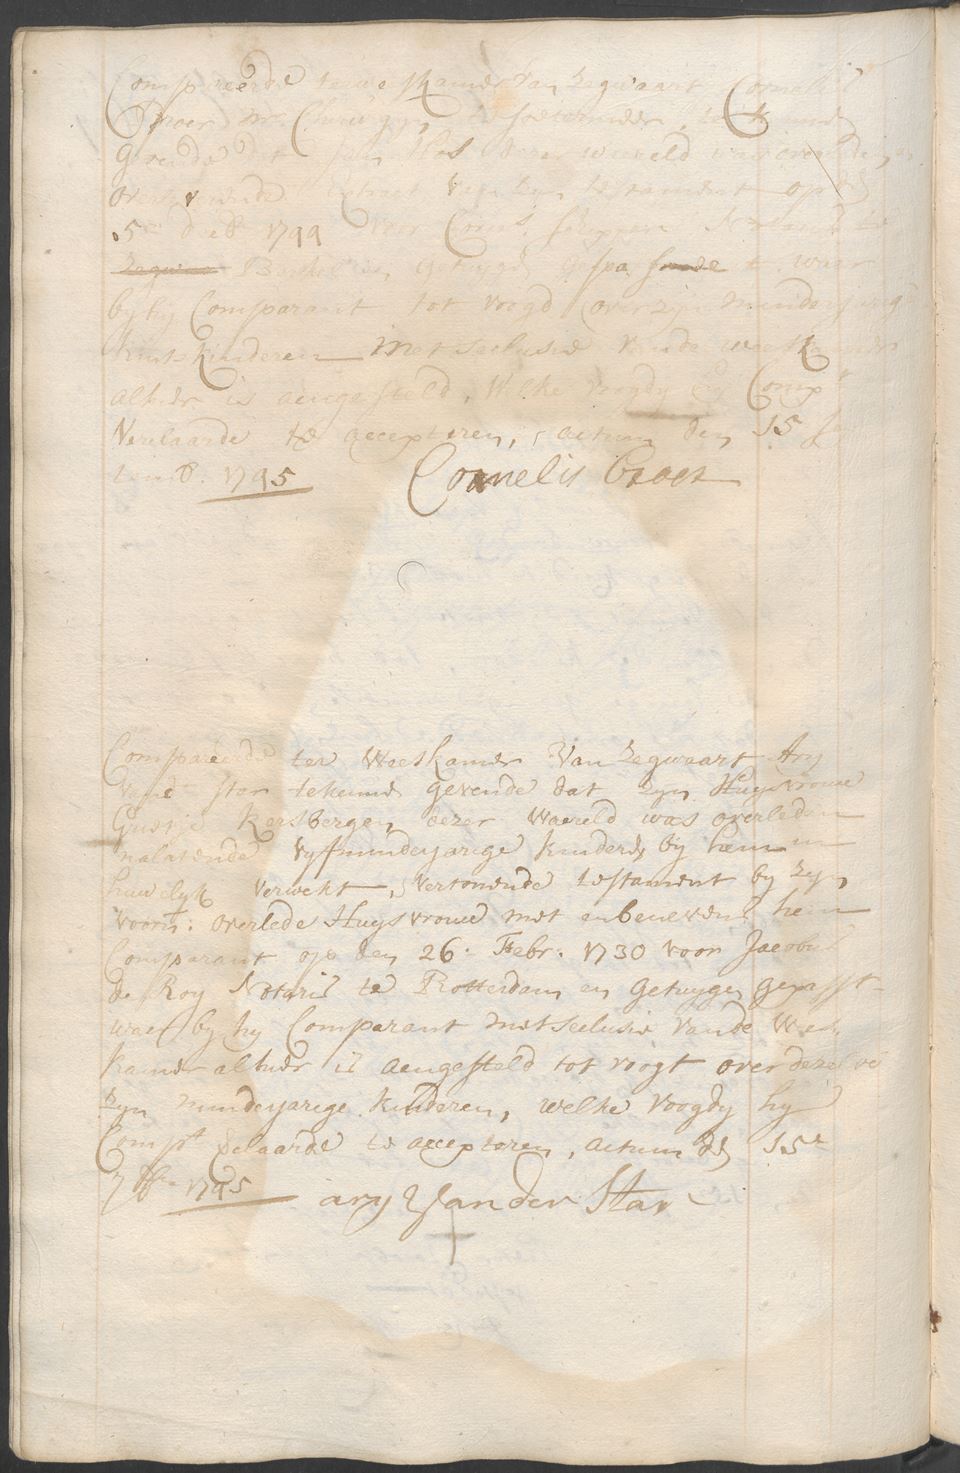 Compareerde ter weeskamer van Zegwaart Cornelis
Croes Mr. Chirurgyn te Soetermeer, te kenne
gevende dat Jan Bos deser weereld was overleden, en
overleverende Extract van zyn testament op den
5en decbr 1744 voor Corns. schippers Notaris te
Zegwaa Berkel en getuygen gepasseerde t waar
by hy Comparant tot voogd over zyn minderjarige
kintskinderen met seclusie vande weeskamer
alhier is aengesteld, welke voogdy hy Compt
Verclaarde te accepteren, actum den 15 sep
temb. 1745 Cornelis Croes
Compareerde ter Weeskamer Van Zegwaart Ary
vander star te kenne gevende dat zyn Huysvrouwe
Guertje Kersbergen dezer Waereld was overleden
nalatende vyf minderjarige kinderen by hem in
huwelyk verwekt, vertonende testament by zyn
voorn: overlede Huysvrouwe met en benevens hem
Comparant op den 26. Febr. 1730 voor Jacobus
de Roy Notaris te Rotterdam en getuygen gepasst
waer by hy Comparant met seclusie vande Wees
kamer alhier is aengesteld tot voogt over dezelve
zyn minderjarige kinderen, welke voogdy hy
Compt. verclaarde te accepteren, actum den 15e
7bre 1745 ary Van der Star